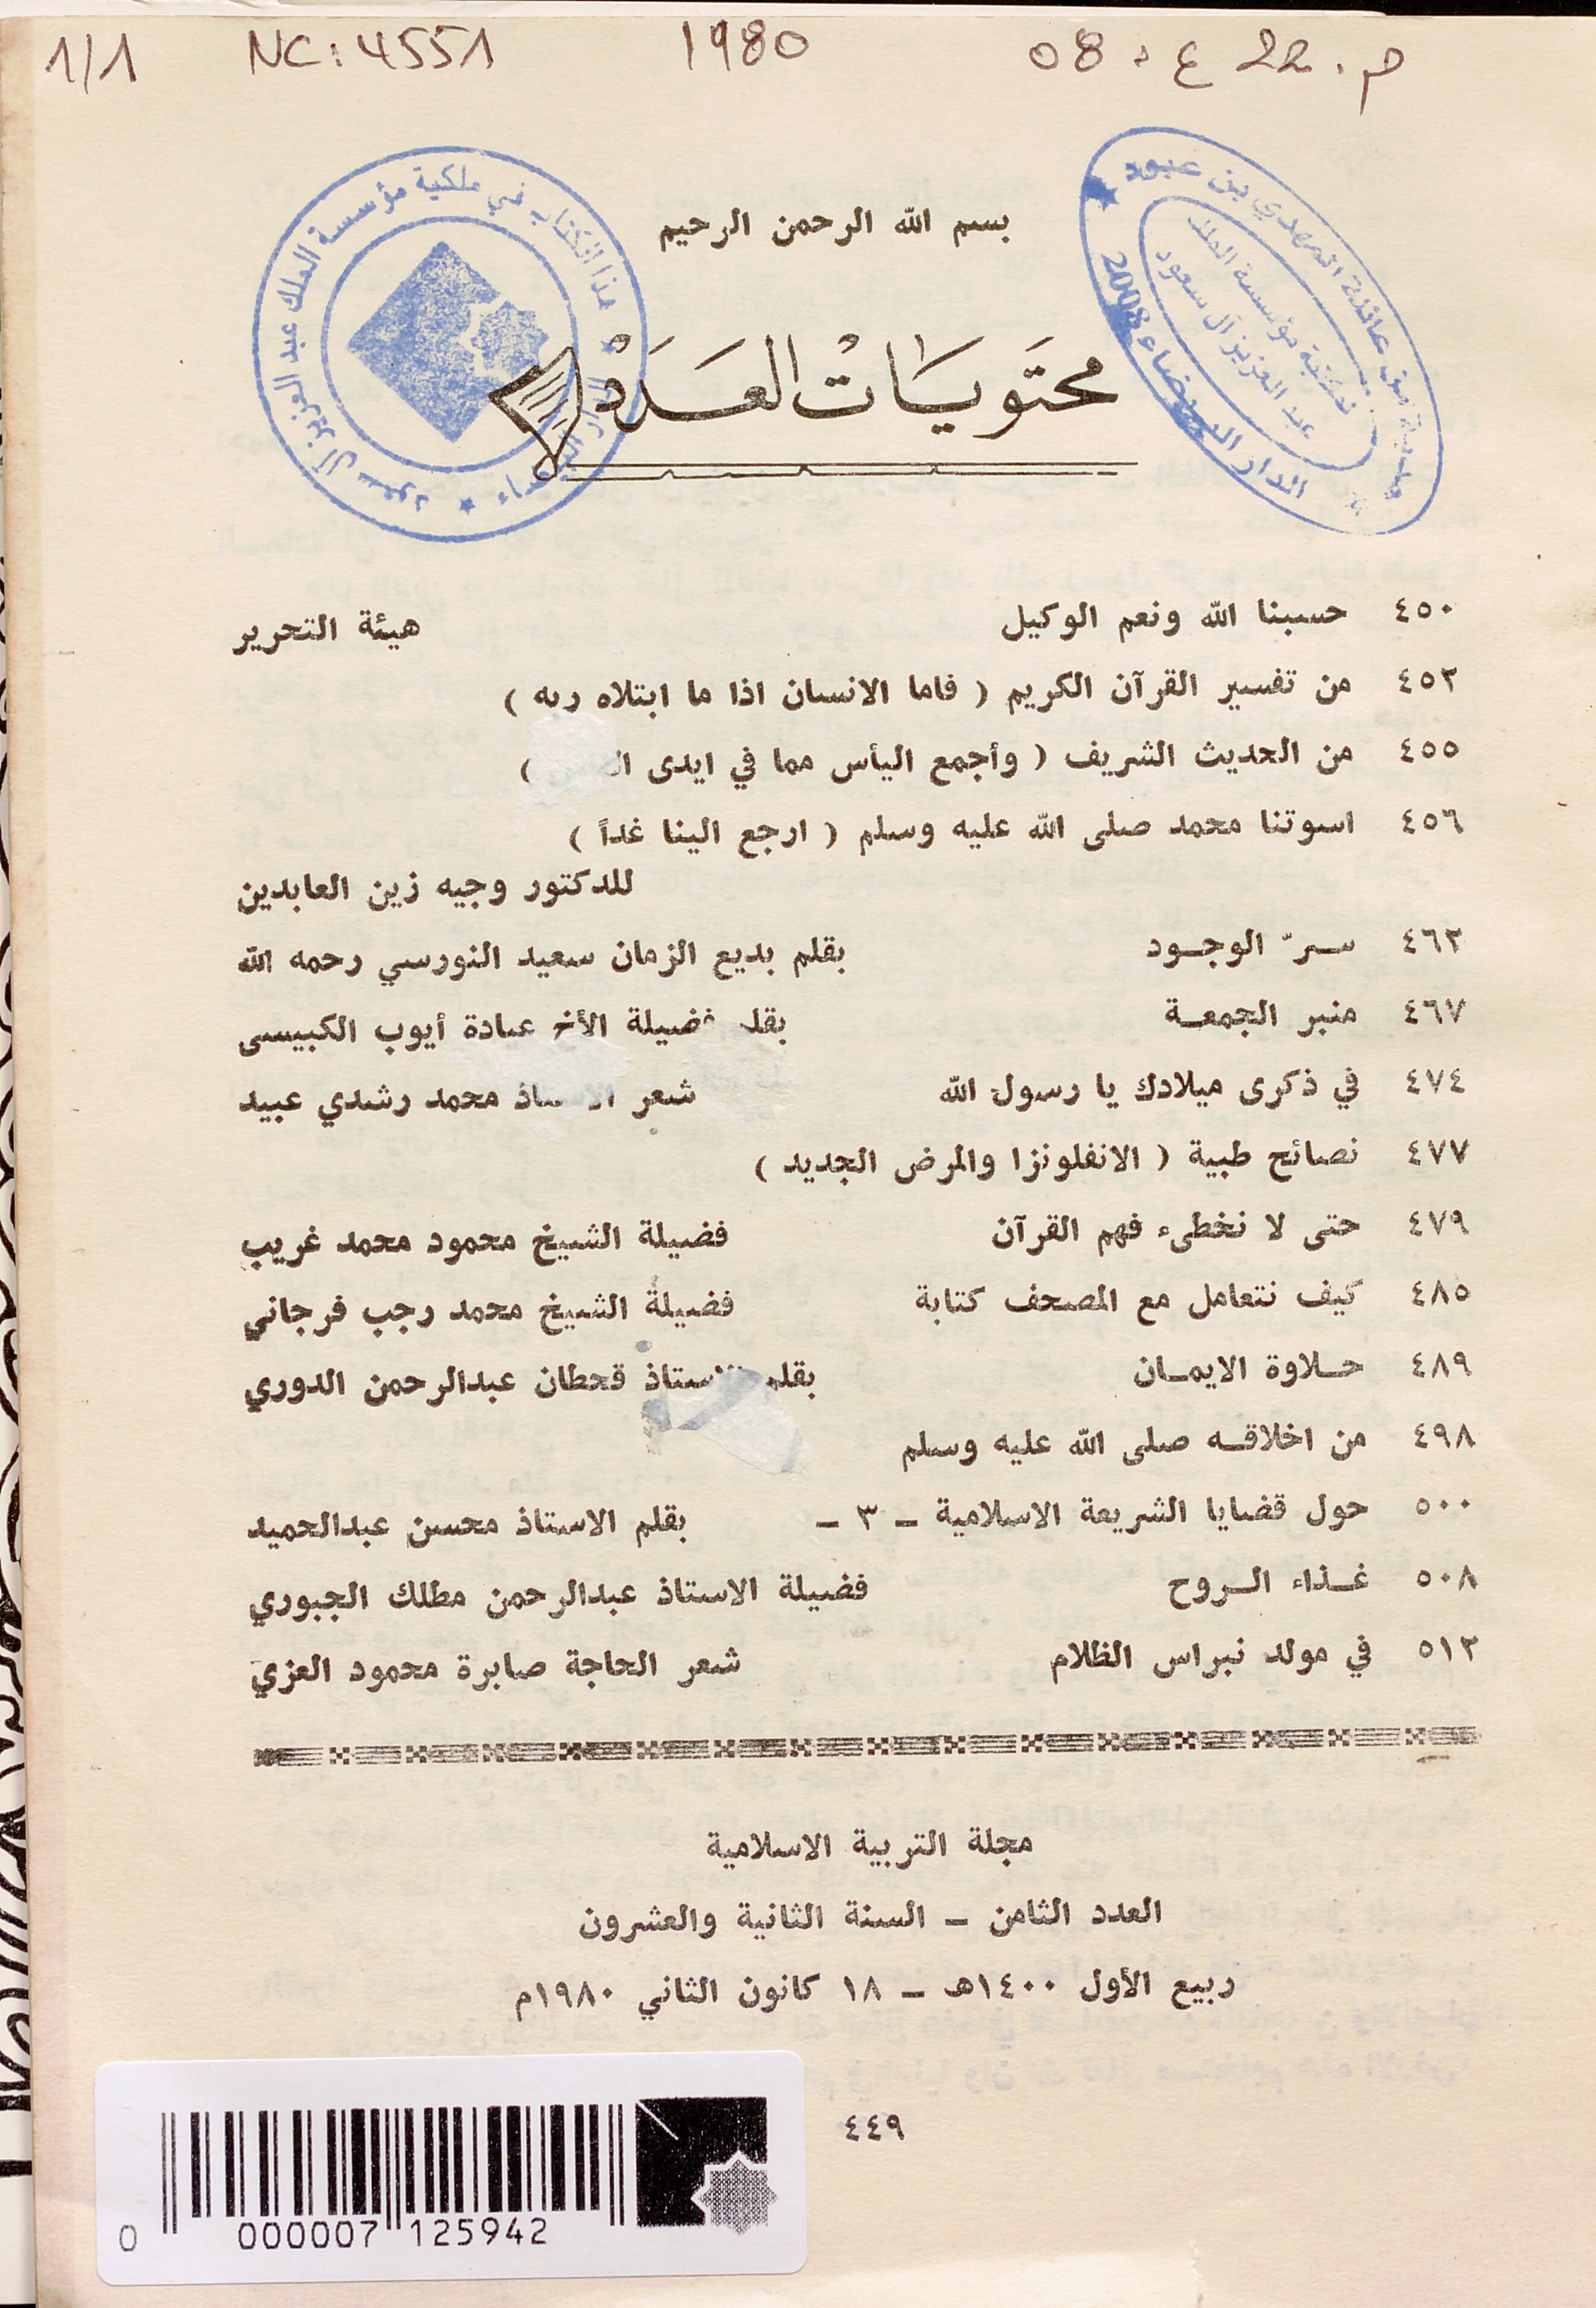 1/1 NC: 4551 1980 م. 22 ع : 08
هذا الكتاب في ملكية مؤسسة الملك عبد العزيز آل سعود
هدية من عائلة المهدي بن عبود
مكتبة مؤسسة الملك
عبد العزيز آل سعود
الدار البيضاء 2008
بسم الله الرحمن الرحيم
محتويات العدد
٤٥٠ حسبنا الله ونعم الوكيل هيئة التحرير
٤٥٣ من تفسير القرآن الكريم ( فاما الانسان اذا ما ابتلاه ربه )
٤٥٥ من الحديث الشريف ( وأجمع اليأس مما في ايدى )
٤٥٦ اسوتنا محمد صلى الله عليه وسلم ( ارجع الينا غداً )
للدكتور وجيه زين العابدين
٤٦٣ ســرّ الوجــود بقلم بديع الزمان سعيد النورسي رحمه الله
٤٦٧ منبر الجمعــة بقلم فضيلة الأخ عبادة أيوب الكبيسى
٤٧٤ في ذكرى ميلادك يا رسول الله شعر الاستاذ محمد رشدي عبيد
٤٧٧ نصائح طبية ( الانفلونزا والمرض الجديد )
٤٧٩ حتى لا نخطىء فهم القرآن فضيلة الشيخ محمود محمد غريب
٤٨٥ كيف نتعامل مع المصحف كتابة فضيلة الشيخ محمد رجب فرجاني
٤٨٩ حــلاوة الايمــان بقلم الاستاذ قحطان عبدالرحمن الدوري
٤٩٨ من اخلاقــه صلى الله عليه وسلم
٥٠٠ حول قضايا الشريعة الاسلامية ــ ٣ ــ بقلم الاستاذ محسن عبدالحميد
٥٠٨ غــذاء الــروح فضيلة الاستاذ عبدالرحمن مطلك الجبوري
٥١٣ في مولد نبراس الظلام شعر الحاجة صابرة محمود العزي
مجلة التربية الاسلامية
العدد الثامن ــ السنة الثانية والعشرون
ربيع الأول ١٤٠٠هـ ــ ١٨ كانون الثاني ١٩٨٠م
٤٤٩
0 000007 125942